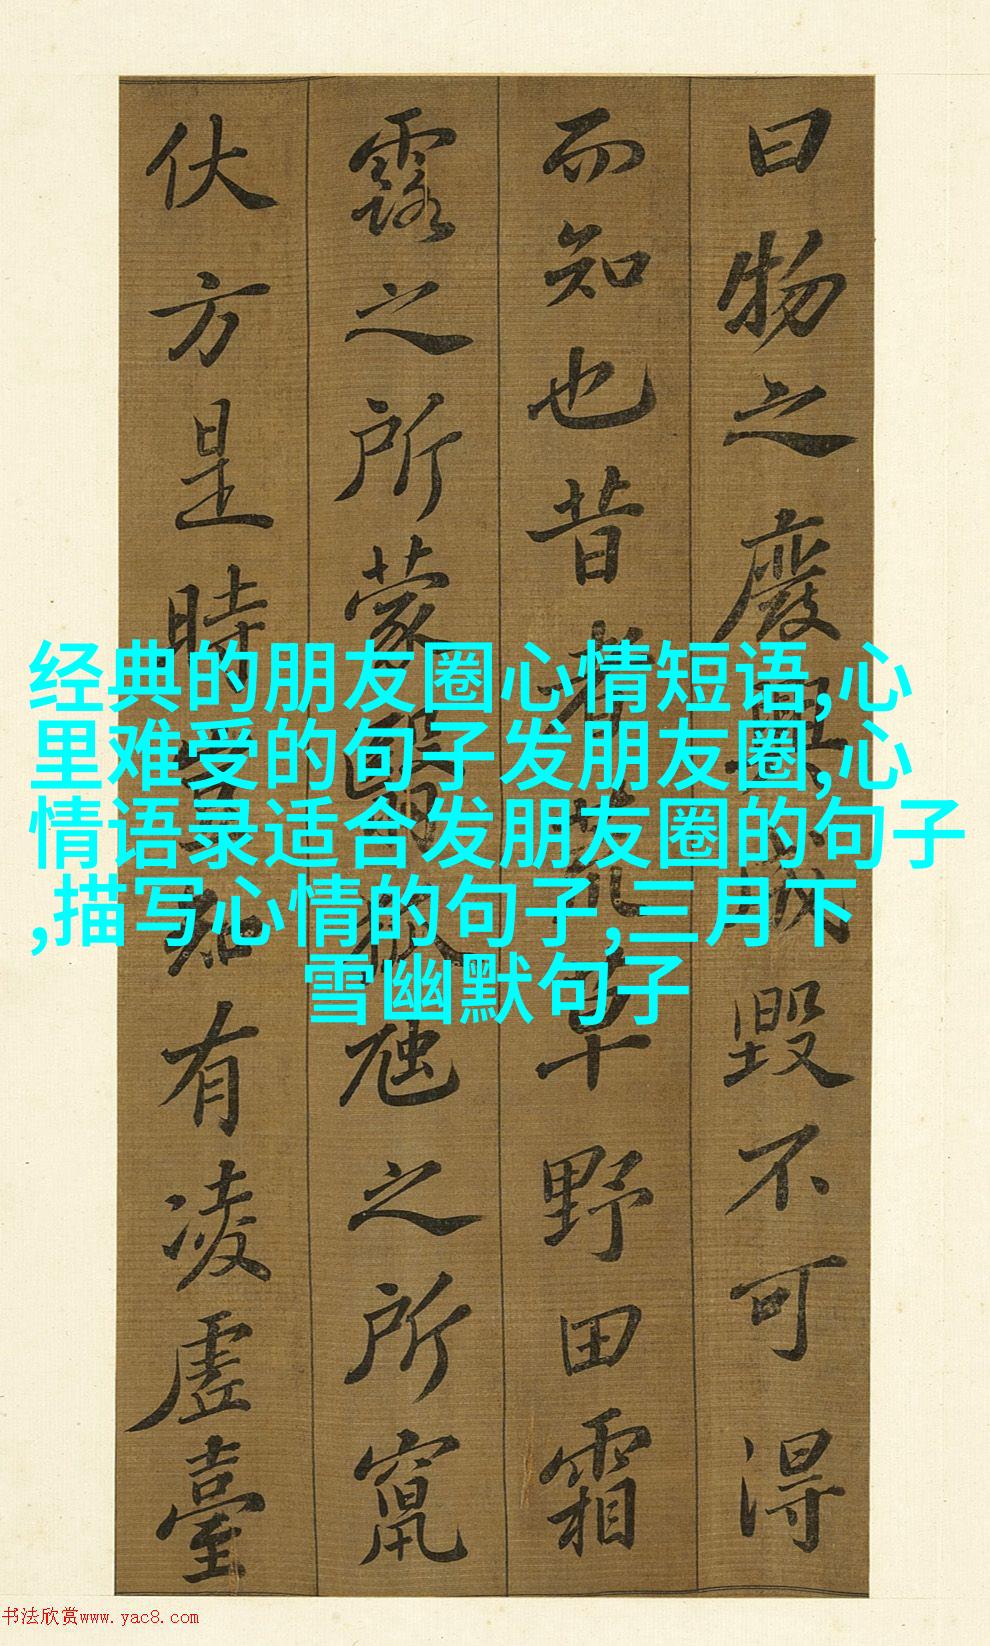 曰物之廢興成毀不可得
而知也昔者荒草野田霜
露之所蒙翳狐虺之所竄
伏方是時豈知有凌虛臺
经典的朋友圈心情短语,心
里难受的句子发朋友圈,心
情语录适合发朋友圈的句子
,描写心情的句子,三月下
雪幽默句子
书法欣赏www.yac8.com